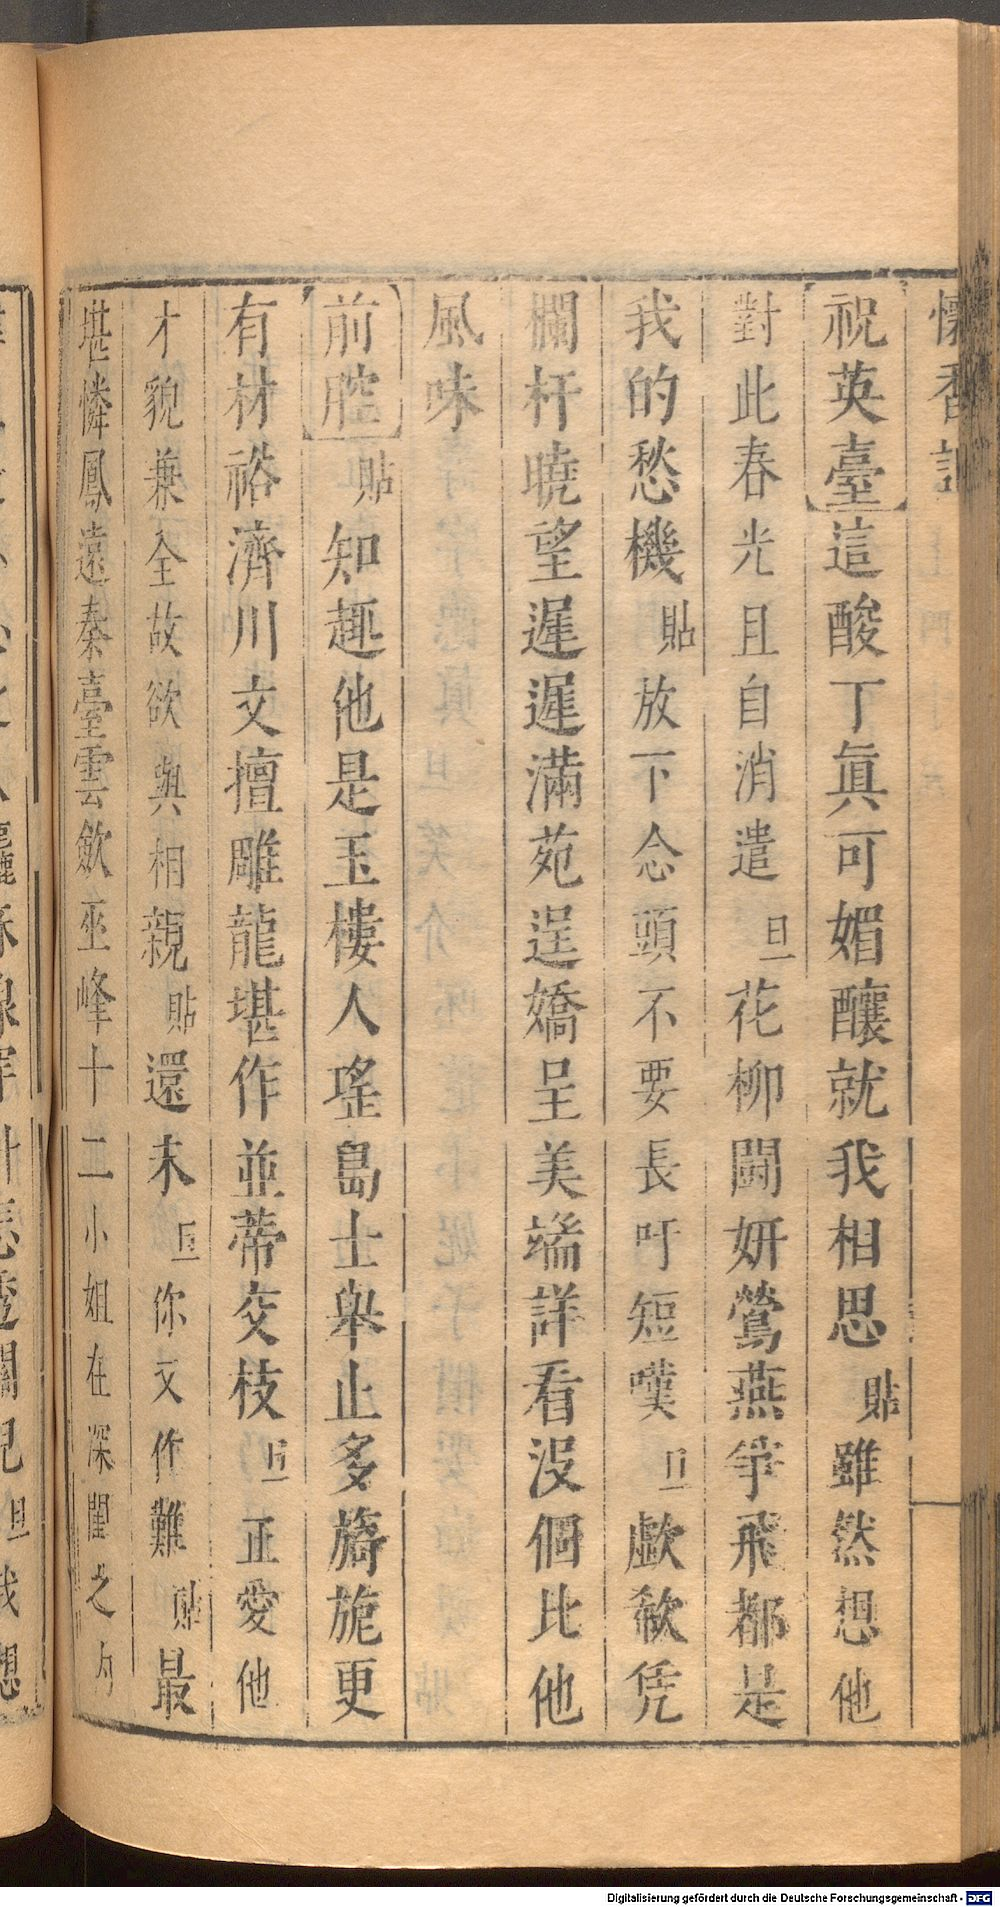 懷香記
祝英臺這酸丁眞可媚釀就我相思貼雖然想他
對此春光且自消遣旦花柳鬪妍鶯燕爭飛都是
我的愁機貼放下念頭不要長吁短嘆旦歔欷凭
欄杆曉望遲遲滿苑逞嬌呈美端詳看沒個比他
風味
前腔貼知趣他是玉樓人瑤島士舉止多旖旎更
有材裕濟川文擅雕龍堪作並蒂交枝旦正愛他
才貌兼全故欲與相親貼還未旦你又作難貼最
堪憐鳳遠秦臺雲歛巫峰十二小姐在深閨之內
Digitalisierung gefördert durch die Deutsche Forschungsgemeinschaft - DFG